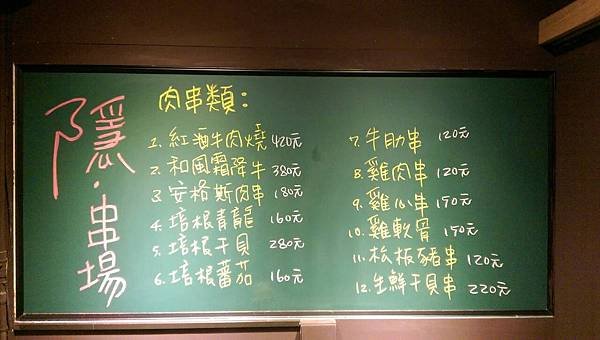 隱·串場
肉串類：
1. 紅酒牛肉燒 420元
2. 和風霜降牛 380元
3. 安格斯肉串 180元
4. 培根青龍 160元
5. 培根干貝 280元
6. 培根蕃茄 160元
7. 牛肋串 120元
8. 雞肉串 120元
9. 雞心串 150元
10. 雞軟骨 150元
11. 松板豬串 120元
12. 生鮮干貝串 220元